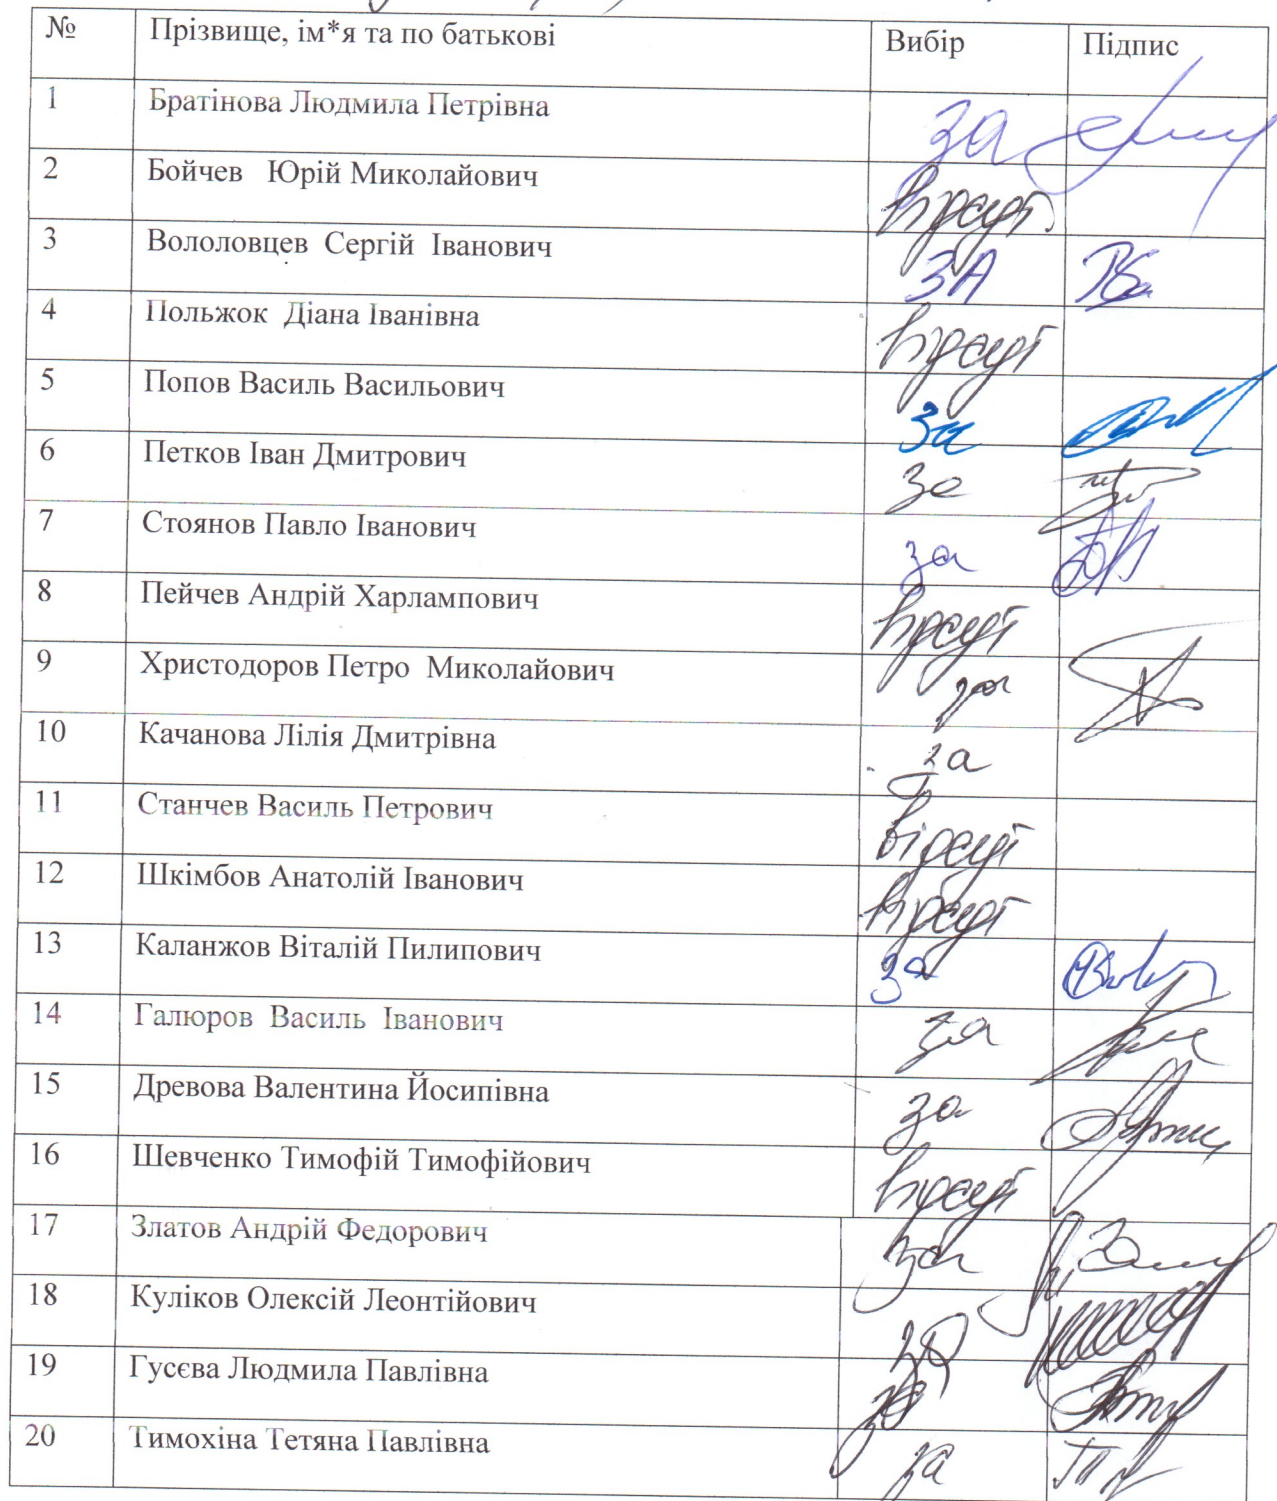 № Прізвище, ім*я та по батькові Вибір Підпис
1 Братінова Людмила Петрівна за
2 Бойчев Юрій Миколайович відсут
3 Вололовцев Сергій Іванович ЗА
4 Польжок Діана Іванівна відсут
5 Попов Василь Васильович За
6 Петков Іван Дмитрович за
7 Стоянов Павло Іванович за
8 Пейчев Андрій Харлампович відсут
9 Христодоров Петро Миколайович за
10 Качанова Лілія Дмитрівна за
11 Станчев Василь Петрович відсут
12 Шкімбов Анатолій Іванович відсут
13 Каланжов Віталій Пилипович за
14 Галюров Василь Іванович за
15 Древова Валентина Йосипівна за
16 Шевченко Тимофій Тимофійович відсут
17 Златов Андрій Федорович за
18 Куліков Олексій Леонтійович за
19 Гусєва Людмила Павлівна за
20 Тимохіна Тетяна Павлівна за